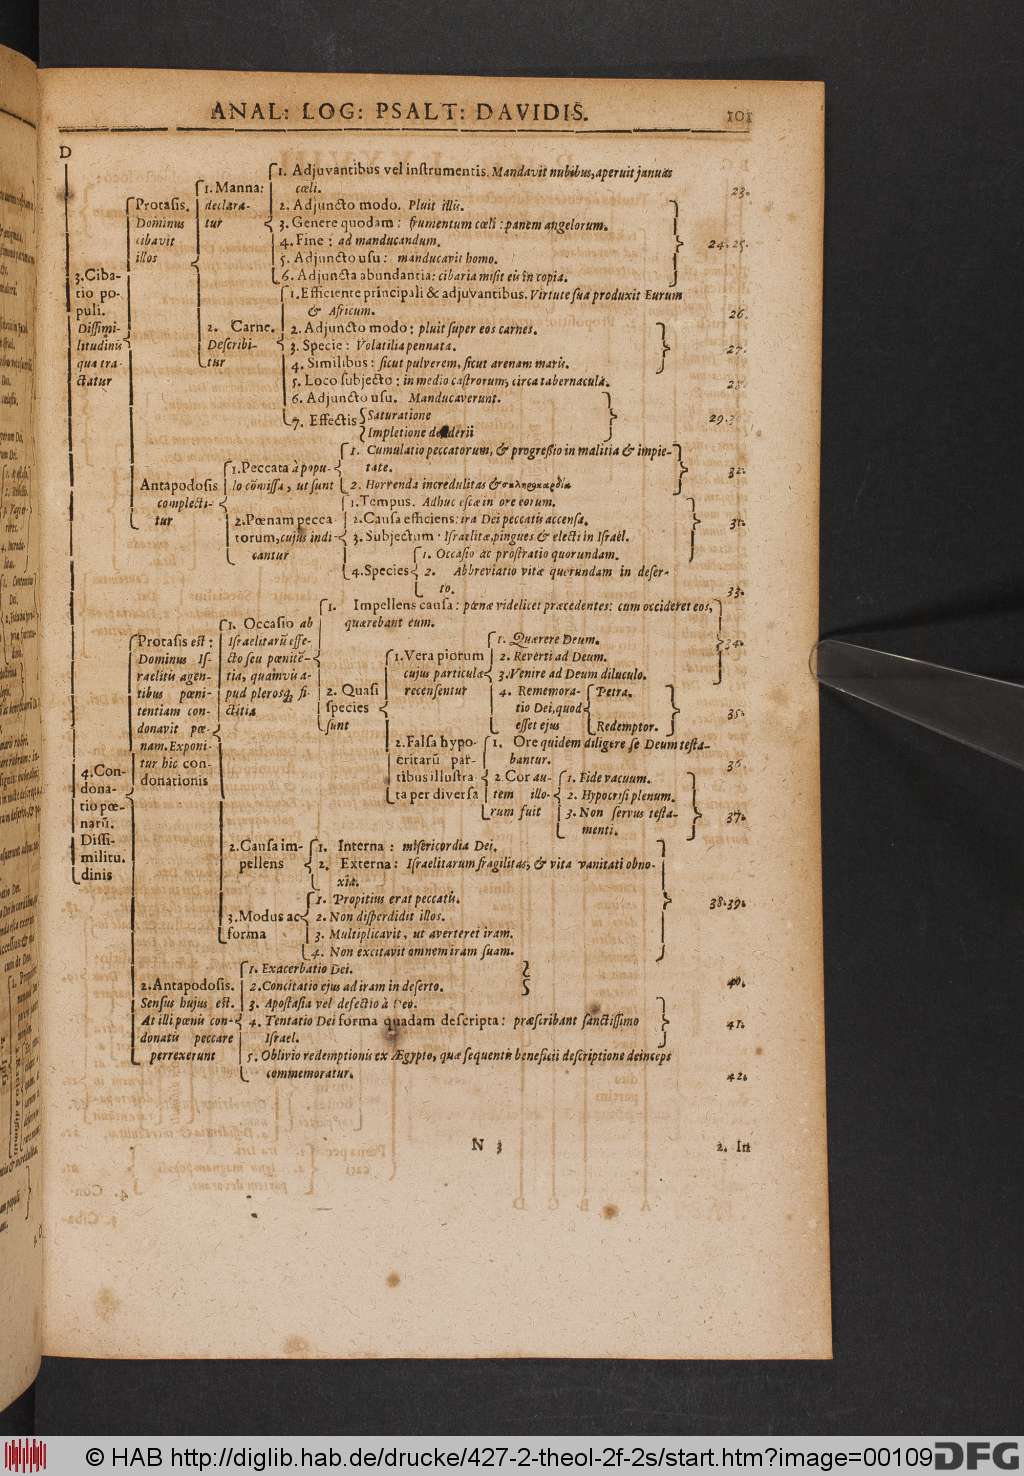 ANAL: LOG: PSALT: DAVIDIS.
101
D
3.Ciba-
tio po-
puli.
Dissimi-
litudinis
qua tra-
ctatur
Protasis.
Dominus
cibavit
illos
1. Manna:
declara-
tur
1. Adjuvantibus vel instrumentis. Mandavit nubibus, aperuit januas
cœli.
23.
2. Adjuncto modo. Pluit illis.
3. Genere quodam: frumentum cœli: panem angelorum.
4. Fine: ad manducandum.
24. 25.
5. Adjuncto usu: manducavit homo.
6. Adjuncta abundantia: cibaria misit eis in copia.
2. Carne.
Describi-
tur
1. Efficiente principali & adjuvantibus. Virtute sua produxit Eurum
& Africum.
26.
2. Adjuncto modo: pluit super eos carnes.
3. Specie: Volatilia pennata.
27.
4. Similibus: sicut pulverem, sicut arenam maris.
5. Loco subjecto: in medio castrorum, circa tabernacula.
28.
6. Adjuncto usu. Manducaverunt.
7. Effectis
Saturatione
Impletione desiderii
29.
Antapodosis
complecti-
tur
1. Peccata à popu-
lo cõmissa, ut sunt
1. Cumulatio peccatorum, & progressio in malitia & impie-
tate.
2. Horrenda incredulitas & σκληροκαρδία
32.
2. Pœnam pecca
torum, cujus indi-
cantur
1. Tempus. Adhuc esca in ore eorum.
2. Causa efficiens: ira Dei peccatis accensa.
3. Subjectum: Israelitæ, pingues & electi in Israël.
31.
4. Species
1. Occasio ac prostratio quorundam.
2. Abbreviatio vitæ quorundam in deser-
to.
33.
4. Con-
dona-
tio pœ-
narũ.
Dissi-
militu-
dinis
Protasis est:
Dominus Is-
raelitis agen-
tibus pœni-
tentiam con-
donavit pœ-
nam. Exponi-
tur hic con-
donationis
1. Occasio ab
Israelitarũ effe-
cto seu pœnitẽ-
tia, quamvis a-
pud plerosq; fi-
ctitia
1. Impellens causa: pœnæ videlicet præcedentes: cum occideret eos,
quærebant eum.
34.
2. Quasi
species
sunt
1. Vera piorum
cujus particulæ
recensentur
1. Quærere Deum.
2. Reverti ad Deum.
3. Venire ad Deum diluculo.
4. Rememora-
tio Dei, quod
esset ejus
Petra.
Redemptor.
35.
2. Falsa hypo-
critarũ par-
tibus illustra-
ta per diversa
1. Ore quidem diligere se Deum testa-
bantur.
36.
2. Cor au-
tem illo-
rum fuit
1. Fide vacuum.
2. Hypocrisi plenum.
3. Non servus testa-
menti.
37.
2. Causa im-
pellens
1. Interna: misericordia Dei.
2. Externa: Israelitarum fragilitas, & vita vanitati obno-
xia.
3. Modus ac
forma
1. Propitius erat peccatis.
2. Non disperdidit illos.
3. Multiplicavit, ut averteret iram.
4. Non excitavit omnem iram suam.
38. 39.
2. Antapodosis.
Sensus hujus est.
At illi pœnis con-
donatis peccare
perrexerunt
1. Exacerbatio Dei.
2. Concitatio ejus ad iram in deserto.
40.
3. Apostasia vel defectio à Deo.
4. Tentatio Dei forma quadam descripta: præscribant sanctissimo
Israel.
41.
5. Oblivio redemptionis ex Ægypto, quæ sequentis beneficii descriptione deinceps
commemoratur.
42.
N 3
2. In
© HAB http://diglib.hab.de/drucke/427-2-theol-2f-2s/start.htm?image=00109
DFG